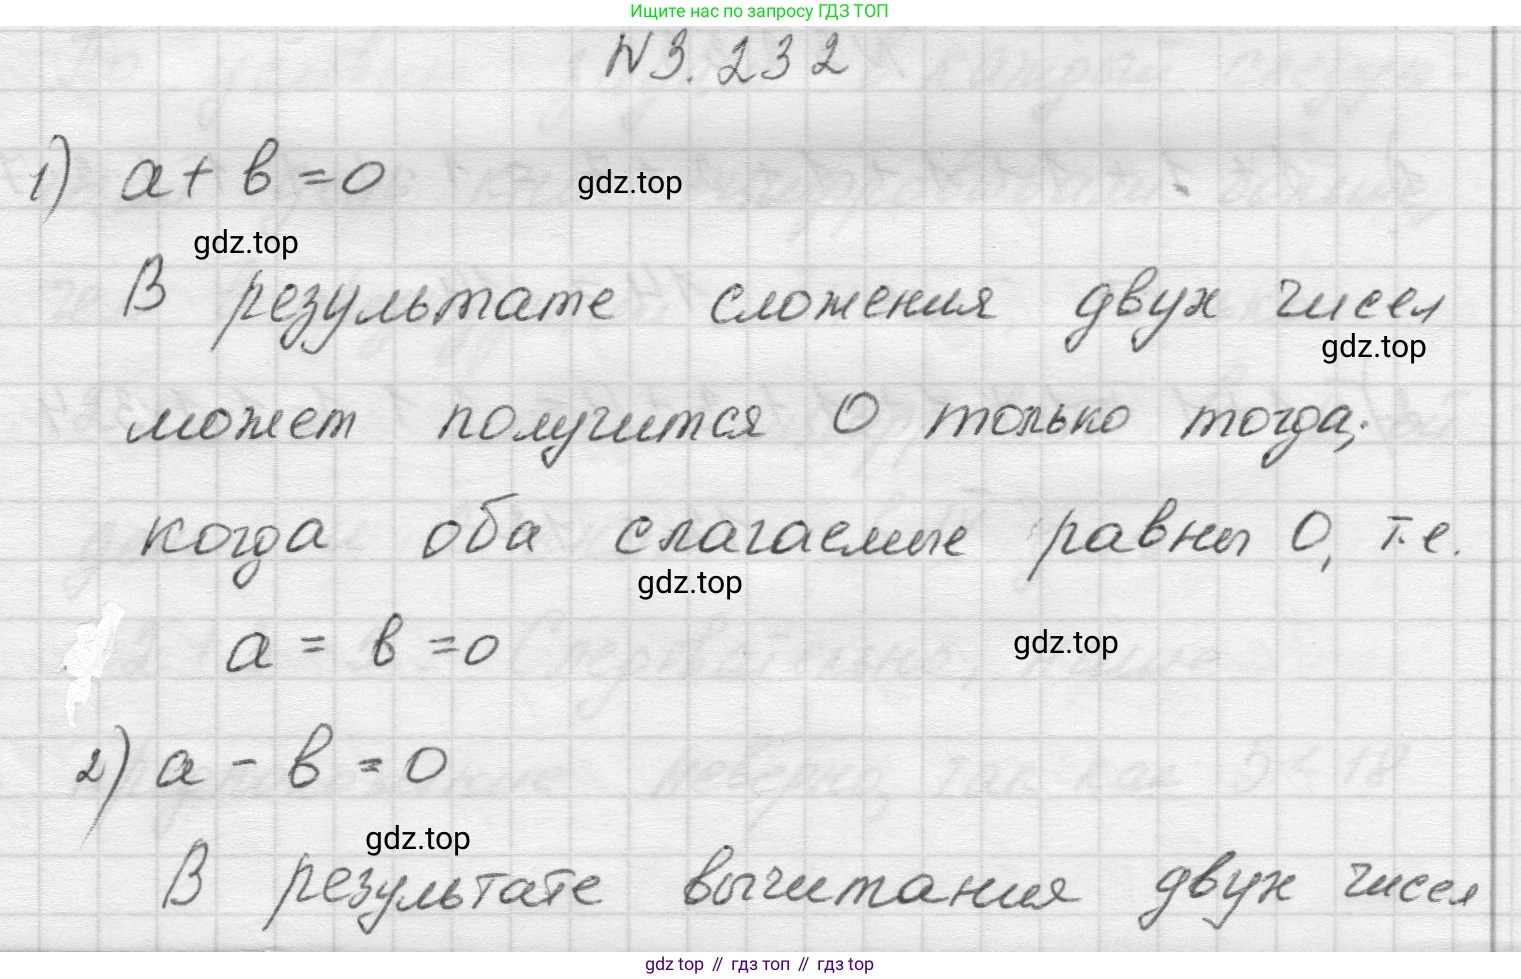 Ищите нас по запросу ГДЗ ТОП
N3.232
1) a + b = 0
gdz.top
gdz.top
В результате сложения двух чисел
gdz.top
может получится 0 только тогда,
когда оба слагаемые равны 0, т.е.
gdz.top
a = b = 0
gdz.top
2) a - b = 0
gdz.top
В результате вычитания двух чисел
gdz top // гдз топ // gdz top